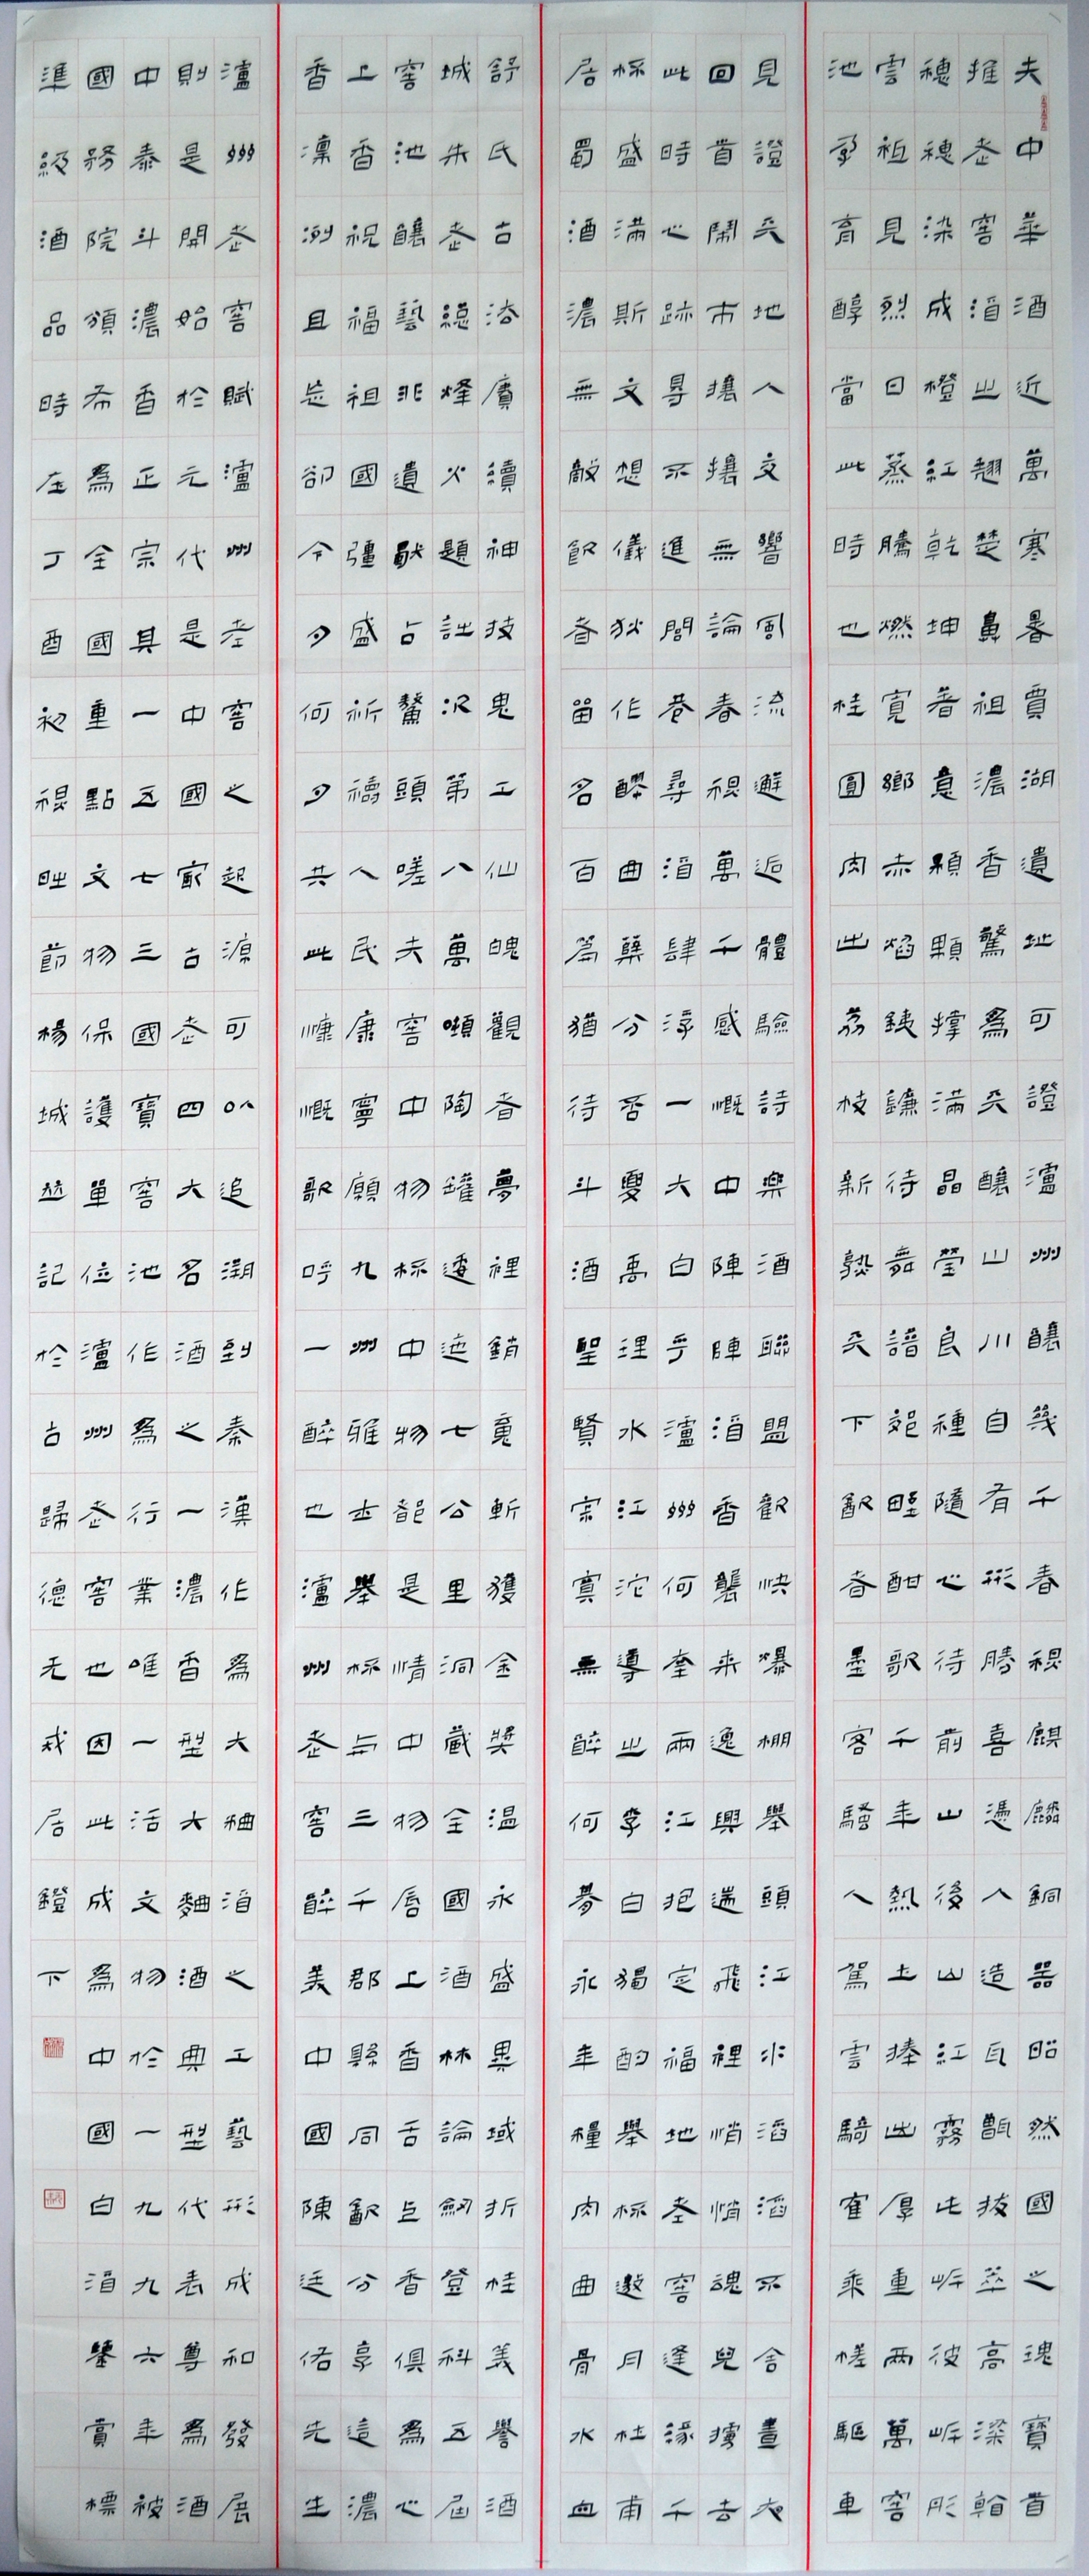 夫中華酒近萬寒暑賈湖遺址可證瀘州釀幾千春稷麒麟銅器昭然國之瑰寶首
推老窖酒之翹楚鼻祖濃香驚為天釀山川自有形勝喜憑人造瓦甑拔萃高粱翰
穗穗染成橙紅乾坤著意顆顆撐滿晶瑩良種隨心待前山後山江霧此岸彼岸彤
雲祖見烈日蒸騰燃寬鄉赤焰銕鐮待舞譜郊野酣歌千年熱土捧出厚重兩萬窖
池孕育醇當此時也桂圓肉出荔枝新熟天下飲者墨客騷人駕雲騎隺乘槎驅車
見證天地人文響風流邂逅體驗詩樂酒聯盟歡快爆棚舉頭江水滔滔不舍晝夜
回首鬧市攘攘無論春稷萬千感慨中陣陣酒香襲來逸興遄飛裡悄悄魂兒擄去
此時心跡尋不進閭巷尋酒肆浮一大白乎瀘州何奎兩江把定福地老窖逢緣千
杯盛滿斯文想儀狄作醪曲糵分否夏禹理水江沱導出李白獨酌舉杯邀月杜甫
居蜀酒濃無敵飲者留名百篇猶待斗酒聖賢寂寞無醉何夢永年糧肉曲骨水血
舒氏古法賡續神技鬼工仙魄觀者夢裡銷竟斬獲金獎溫永盛異域折桂義譽酒
城朱老總烽火題詠況第八萬噸陶罐逶迤七公里洞藏全國酒林論劍登科五屆
窖池釀藝非遺猷占鰲頭嗟夫窖中物杯中物都是情中物唇上香舌上香俱為心
上香祝福祖國彊盛祈禱人民康寧願九州雅士舉杯與三千郡縣同飲分享這濃
香凜冽且長卻今夕何夕共此慷慨歌呼一醉也瀘州老窖醉美中國陳廷佑先生
瀘州老窖賦瀘州老窖之起源可以追溯到秦漢作為大麯酒之工藝形成和發展
則是開始於元代是中國最古老四大名酒之一濃香型大麯酒典型代表尊為酒
中泰斗濃香正宗其一五七三國寶窖池作為行業唯一活文物於一九九六年被
國務院頒布為全國重點文物保護單位瀘州老窖也因此成為中國白酒鑒賞標
準級酒品時在丁酉初稷畊節楊城並記於古歸德无戒居鐙下